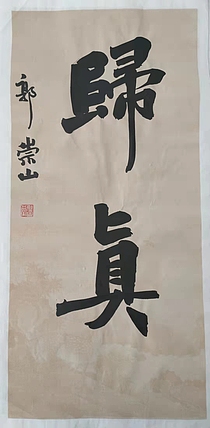 歸真
郭崇山